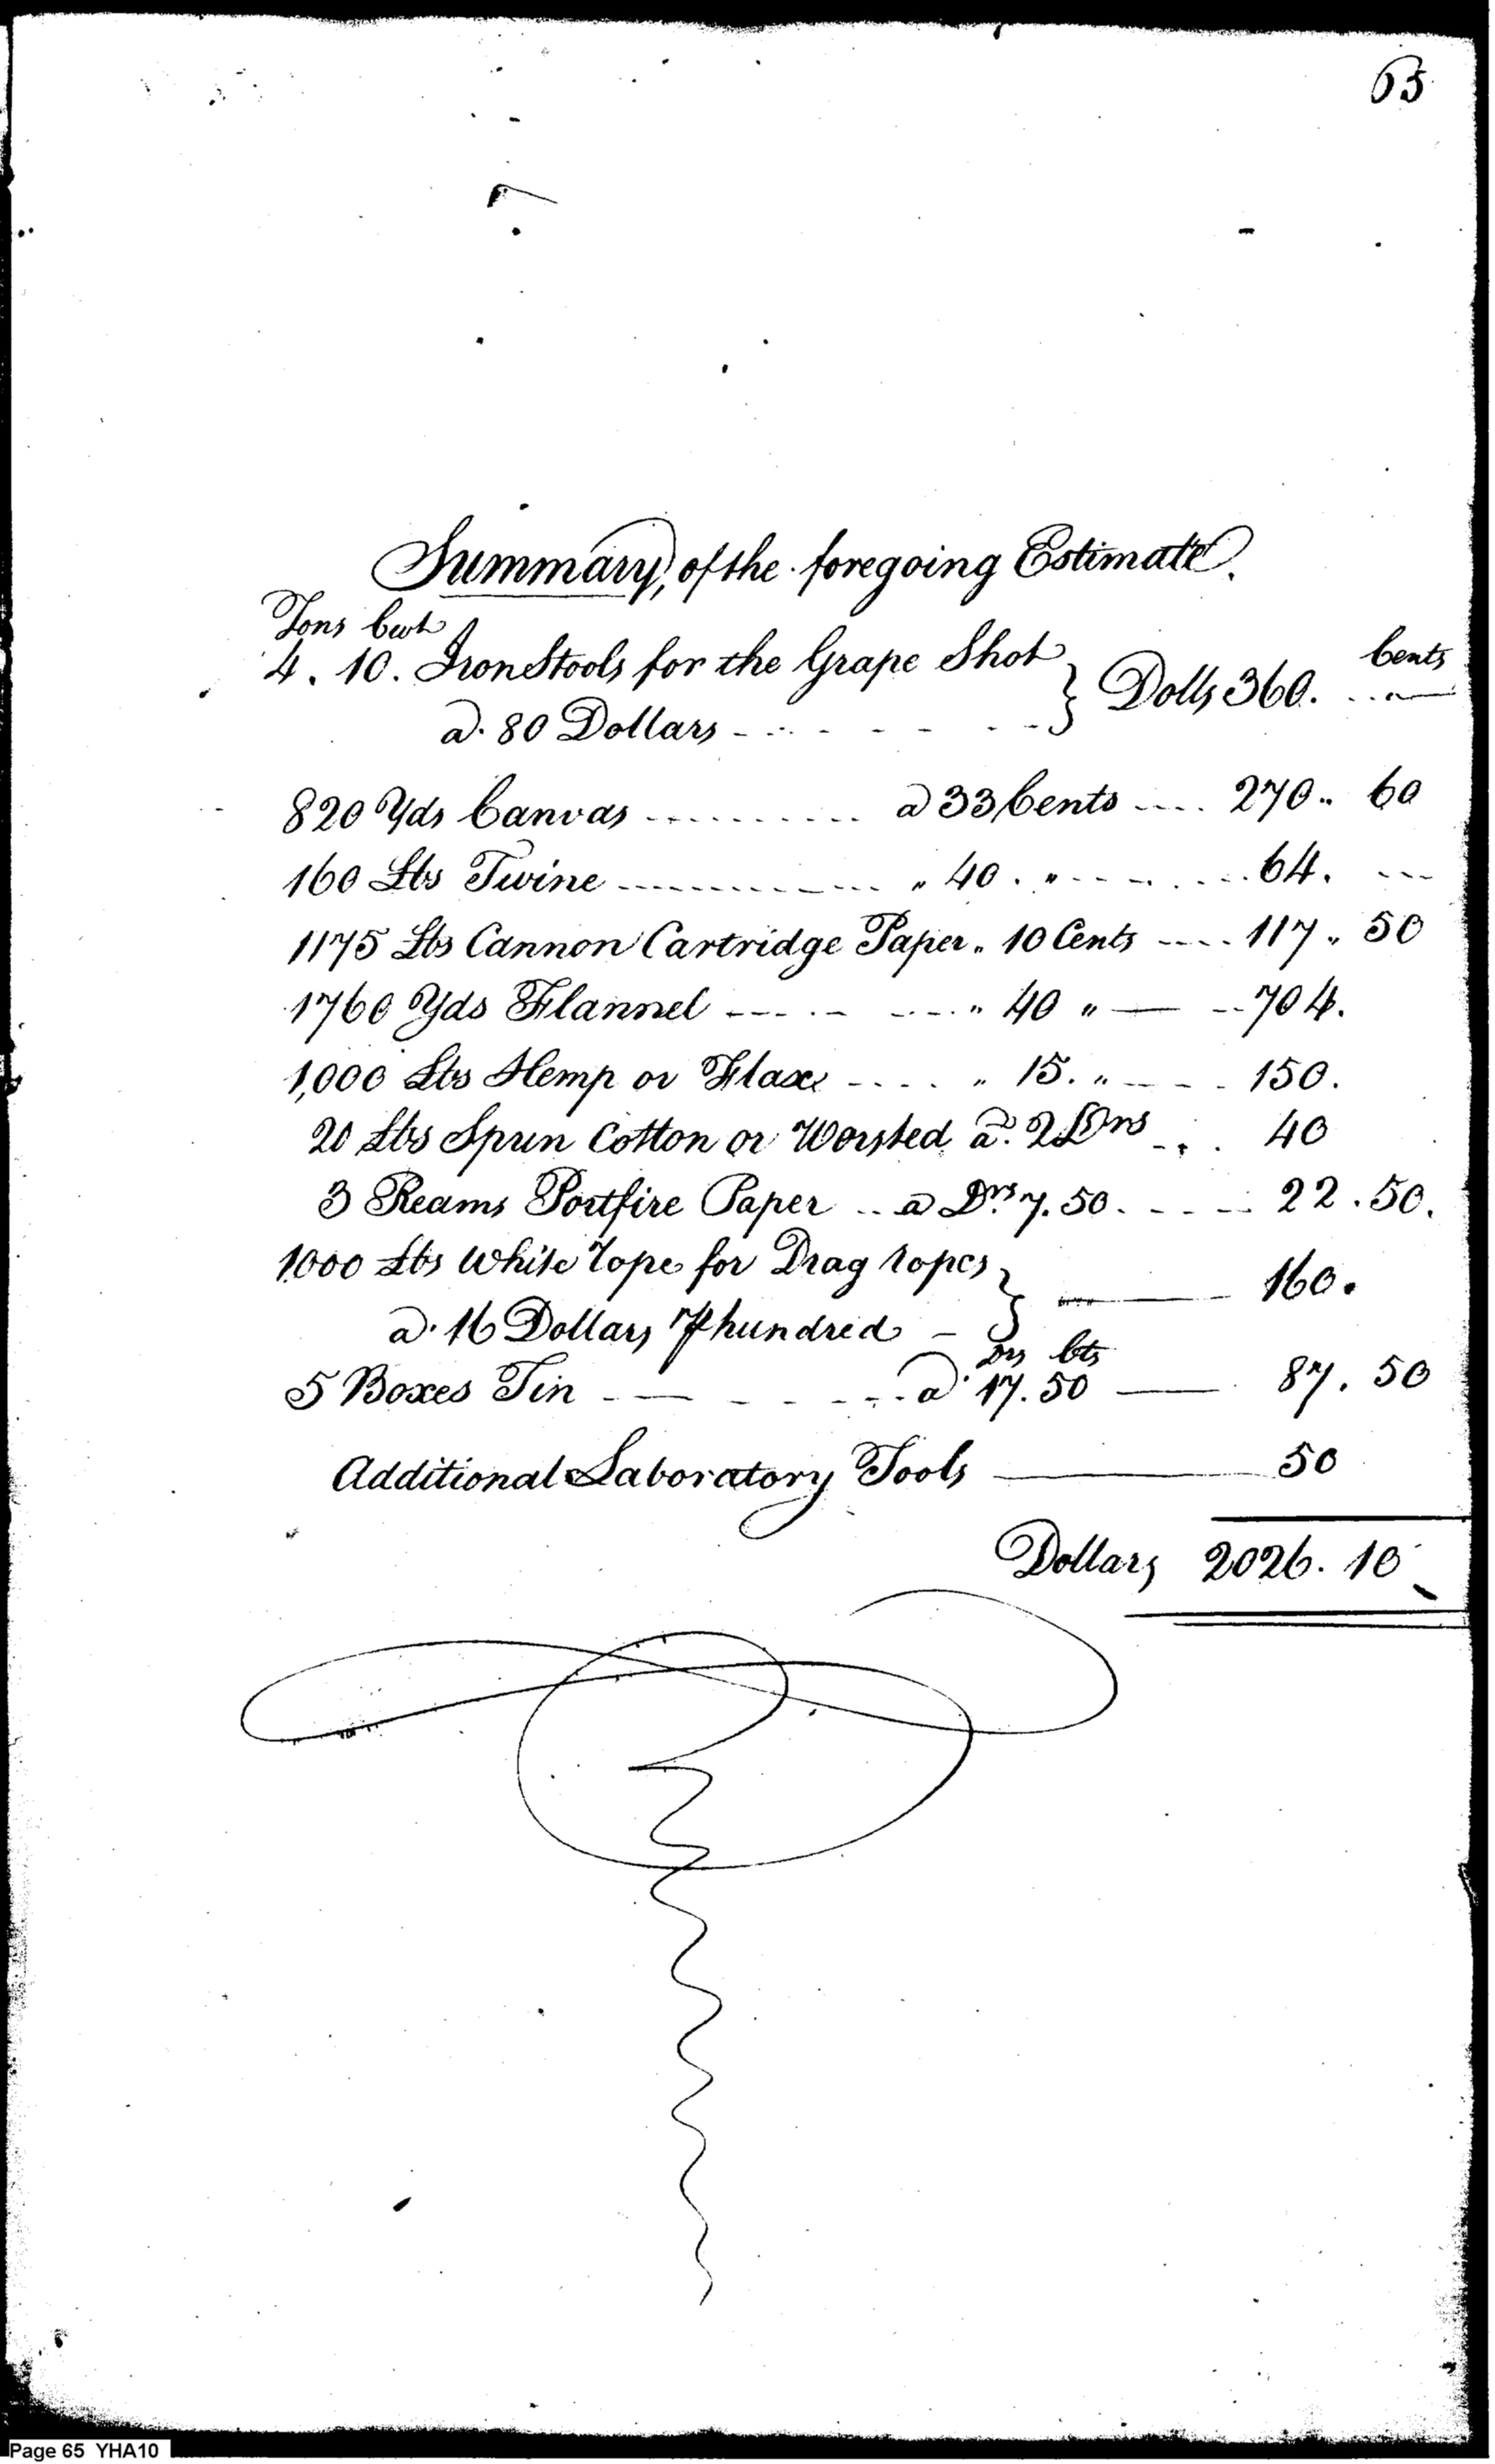 65
Summary, of the foregoing Estimate.
Tons Cwt
4. 10. Iron Stools for the Grape Shot } Dolls 360. .. Cents
a. 80 Dollars
820 Yds Canvas a 33 Cents 270. 60
160 Lbs Twine " 40. " 64.
1175 Lbs Cannon Cartridge Paper " 10 Cents 117. 50
1760 Yds Flannel " 40 " 704.
1,000 Lbs Hemp or Flax " 15. " 150.
20 Lbs Spun Cotton or Worsted a. 2 Drs 40
3 Reams Portfire Paper a Drs 7.50. 22.50.
1000 Lbs White rope for Drag ropes } 160.
a. 16 Dollars ⅌ hundred
Drs Cts
5 Boxes Tin a. 17.50 87.50
Additional Laboratory Tools 50
Dollars 2026.10
Page 65 YHA10